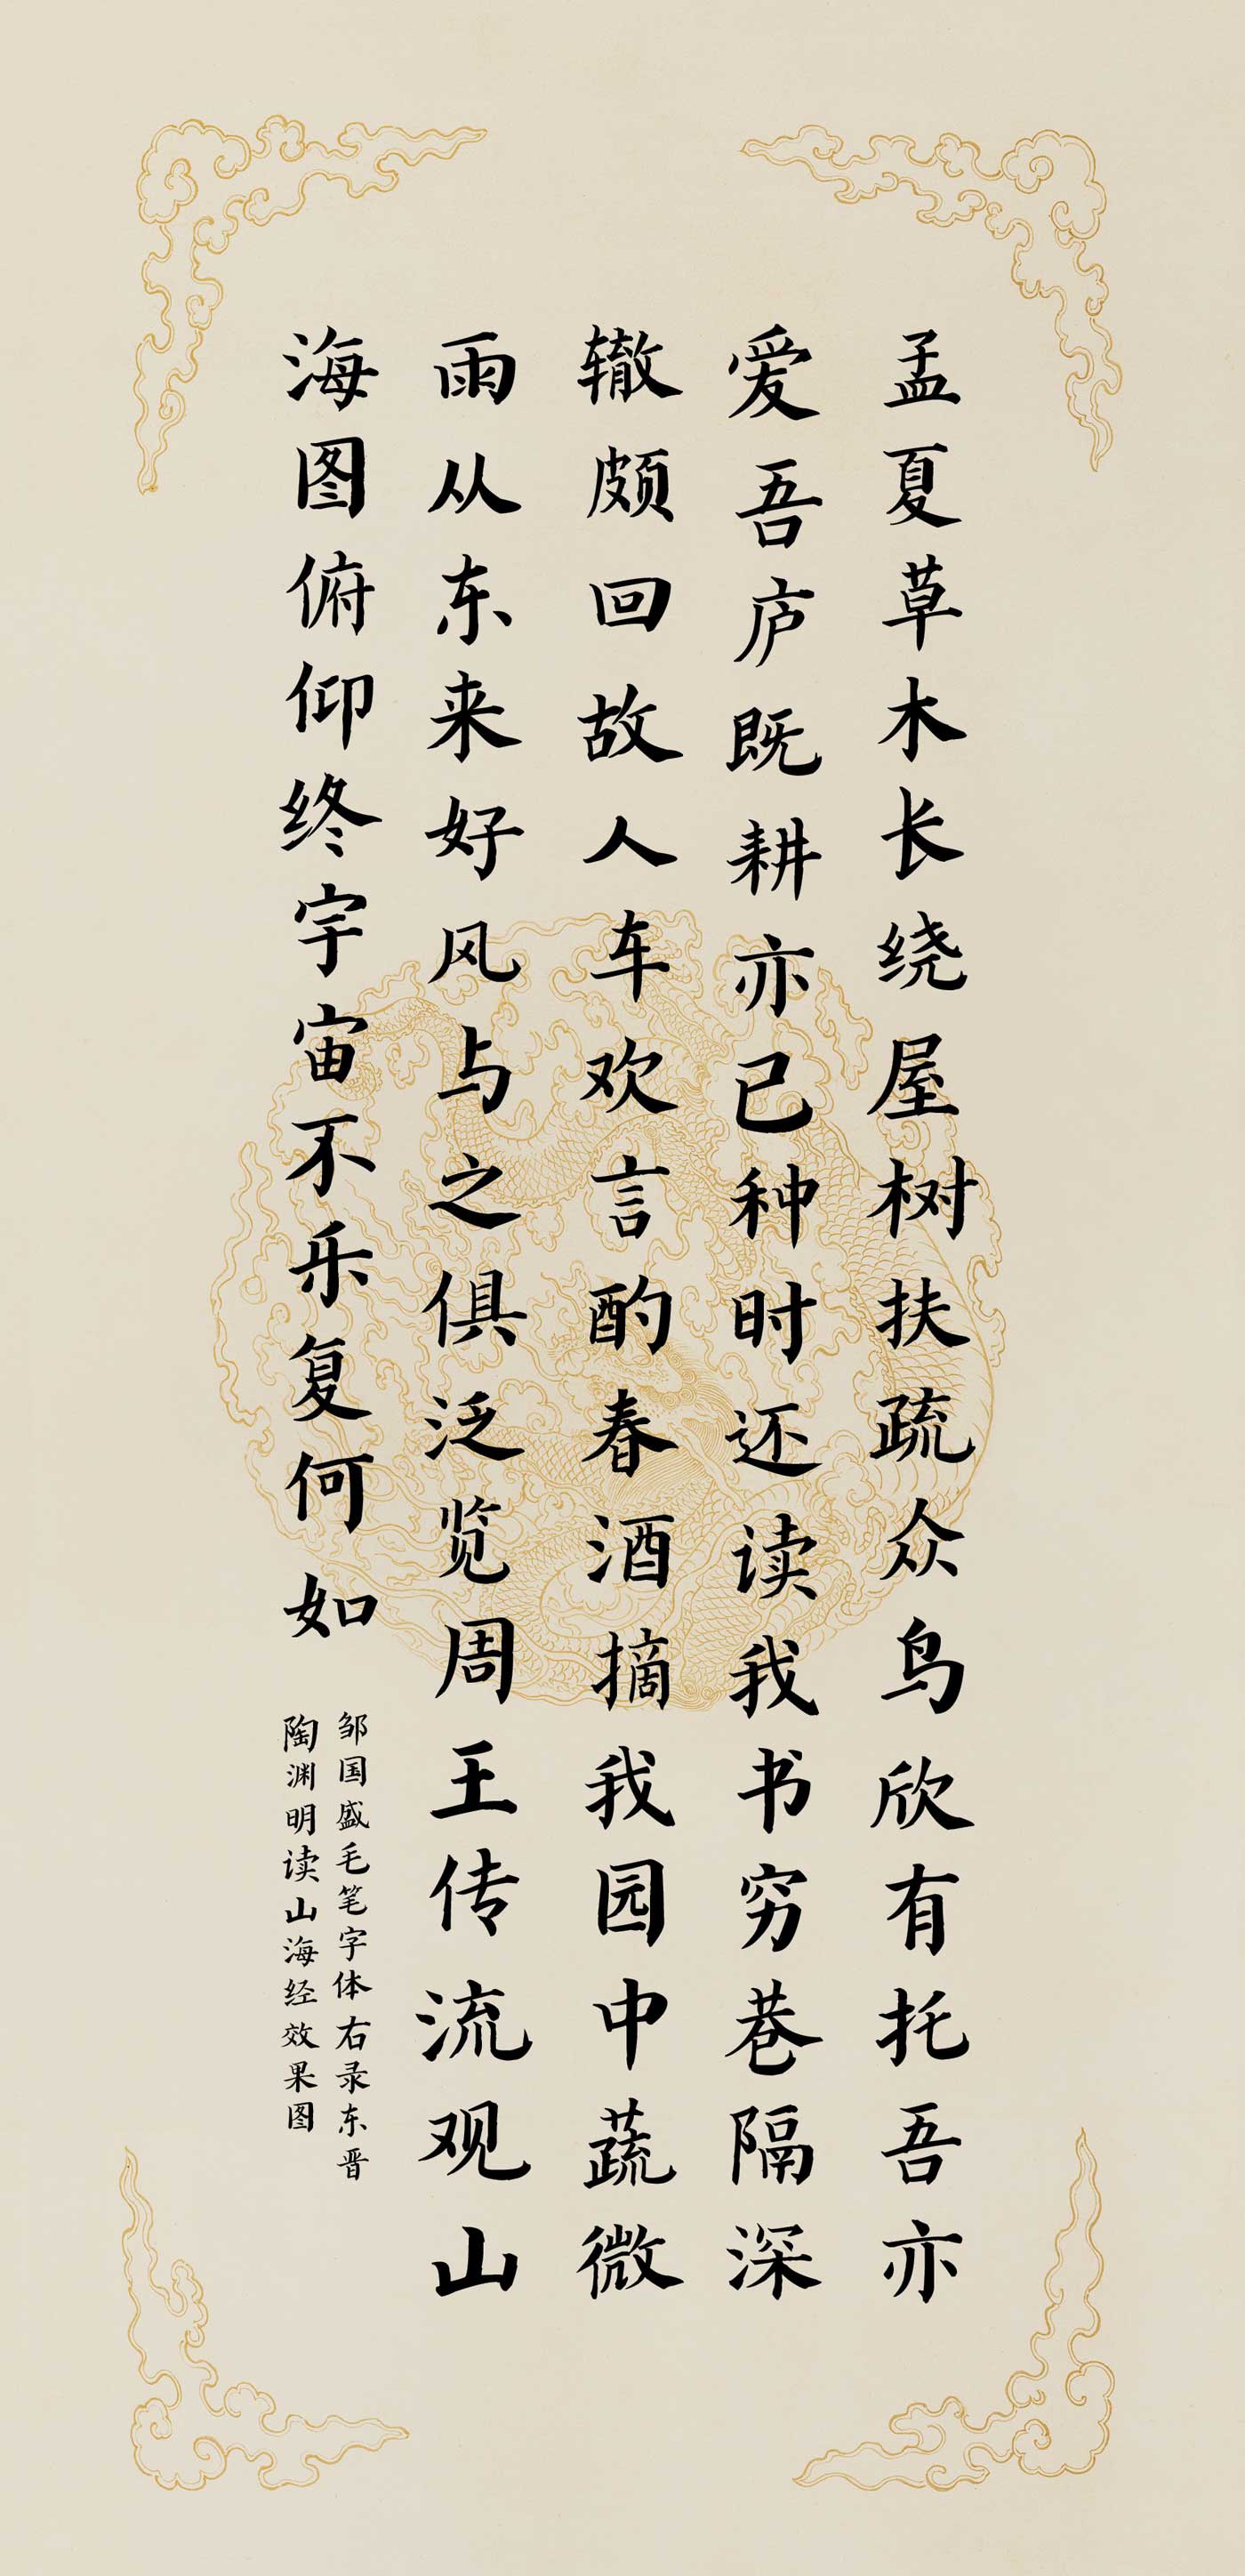 孟夏草木长绕屋树扶疏众鸟欣有托吾亦
爱吾庐既耕亦已种时还读我书穷巷隔深
辙颇回故人车欢言酌春酒摘我园中蔬微
雨从东来好风与之俱泛览周王传流观山
海图俯仰终宇宙不乐复何如
邹国盛毛笔字体右录东晋
陶渊明读山海经效果图